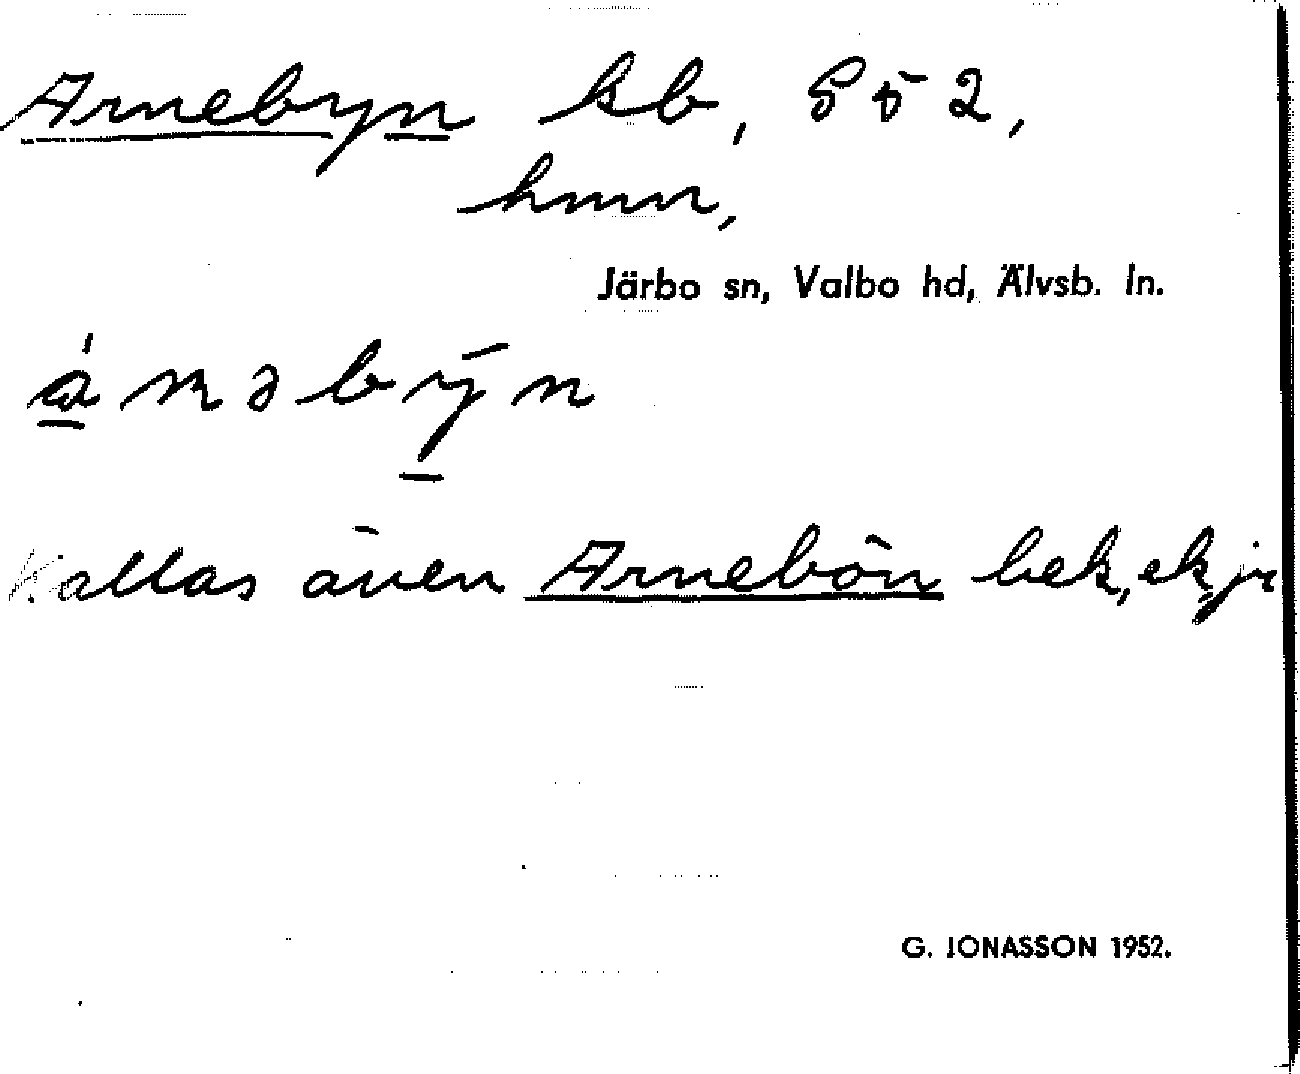 Arnebyn kb, Sö 2,
hmn,
Järbo sn, Valbo hd, Älvsb. ln.
Kallas även Arnebön bek, ek, jr
G. JONASSON 1952.